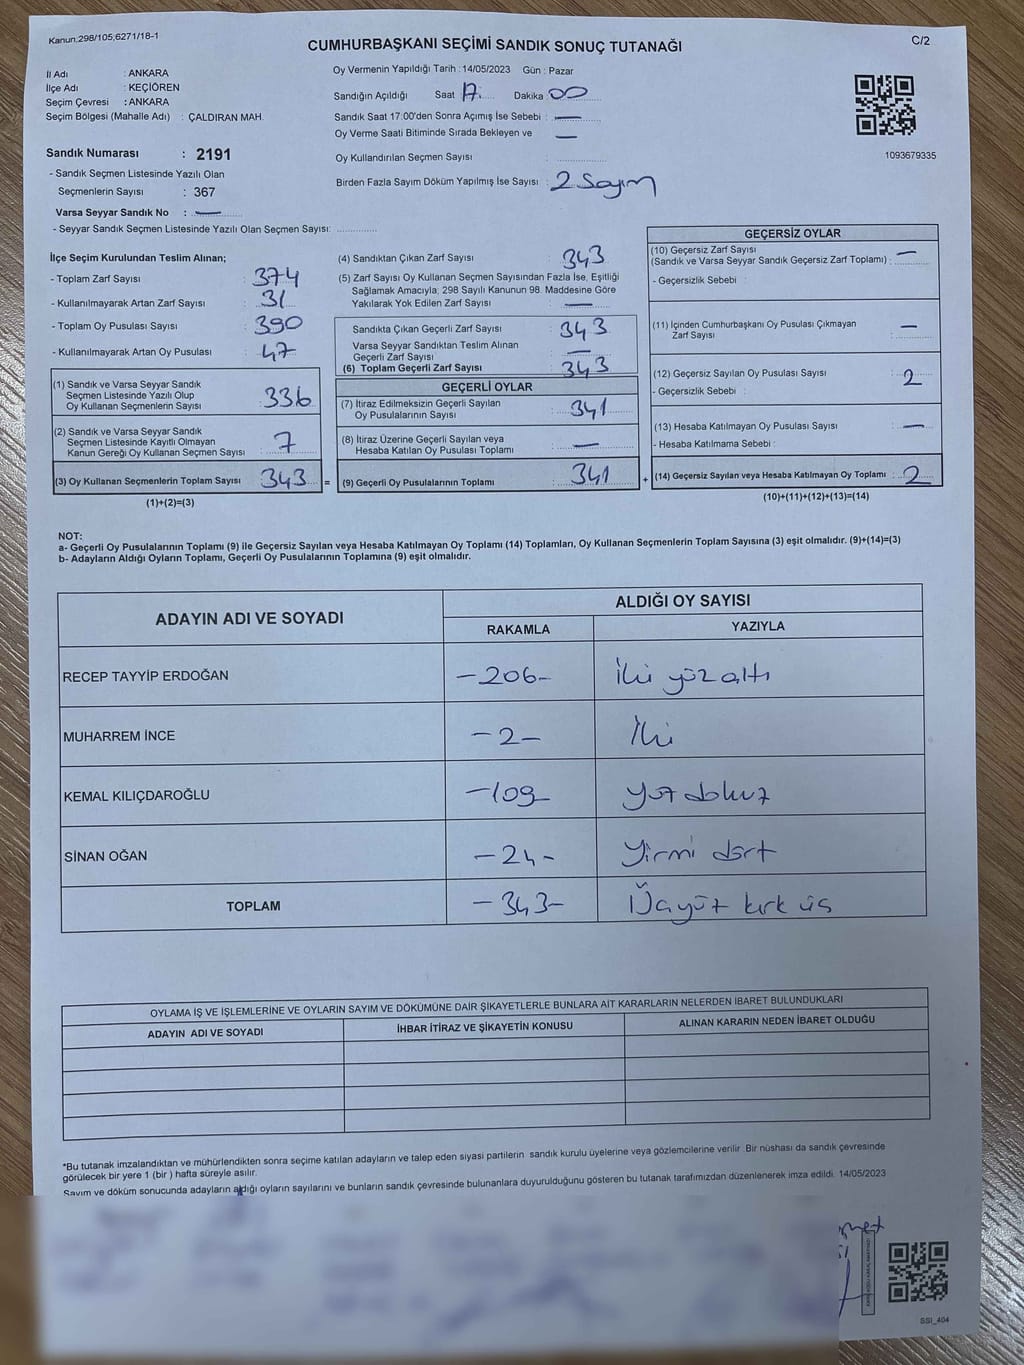 Kanun:298/105;6271/18-1
C/2
CUMHURBAŞKANI SEÇİMİ SANDIK SONUÇ TUTANAĞI
İl Adı : ANKARA
İlçe Adı : KEÇİÖREN
Seçim Çevresi : ANKARA
Seçim Bölgesi (Mahalle Adı) : ÇALDIRAN MAH.
Oy Vermenin Yapıldığı Tarih : 14/05/2023 Gün : Pazar
Sandığın Açıldığı Saat 17 Dakika 00
Sandık Saat 17:00'den Sonra Açımış İse Sebebi : —
Oy Verme Saati Bitiminde Sırada Bekleyen ve —
Oy Kullandırılan Seçmen Sayısı :
Birden Fazla Sayım Döküm Yapılmış İse Sayısı : 2 Sayım
1093679335
Sandık Numarası : 2191
- Sandık Seçmen Listesinde Yazılı Olan
Seçmenlerin Sayısı : 367
Varsa Seyyar Sandık No : —
- Seyyar Sandık Seçmen Listesinde Yazılı Olan Seçmen Sayısı:
İlçe Seçim Kurulundan Teslim Alınan;
- Toplam Zarf Sayısı : 374
- Kullanılmayarak Artan Zarf Sayısı : 31
- Toplam Oy Pusulası Sayısı : 390
- Kullanılmayarak Artan Oy Pusulası : 47
(1) Sandık ve Varsa Seyyar Sandık
Seçmen Listesinde Yazılı Olup
Oy Kullanan Seçmenlerin Sayısı : 336
(2) Sandık ve Varsa Seyyar Sandık
Seçmen Listesinde Kayıtlı Olmayan
Kanun Gereği Oy Kullanan Seçmen Sayısı : 7
(3) Oy Kullanan Seçmenlerin Toplam Sayısı : 343 =
(1)+(2)=(3)
(4) Sandıktan Çıkan Zarf Sayısı : 343
(5) Zarf Sayısı Oy Kullanan Seçmen Sayısından Fazla İse, Eşitliği
Sağlamak Amacıyla; 298 Sayılı Kanunun 98. Maddesine Göre
Yakılarak Yok Edilen Zarf Sayısı : —
Sandıkta Çıkan Geçerli Zarf Sayısı : 343
Varsa Seyyar Sandıktan Teslim Alınan
Geçerli Zarf Sayısı : —
(6) Toplam Geçerli Zarf Sayısı : 343
GEÇERLİ OYLAR
(7) İtiraz Edilmeksizin Geçerli Sayılan
Oy Pusulalarının Sayısı : 341
(8) İtiraz Üzerine Geçerli Sayılan veya
Hesaba Katılan Oy Pusulası Toplamı : —
(9) Geçerli Oy Pusulalarının Toplamı : 341 +
GEÇERSİZ OYLAR
(10) Geçersiz Zarf Sayısı —
(Sandık ve Varsa Seyyar Sandık Geçersiz Zarf Toplamı) :
- Geçersizlik Sebebi :
(11) İçinden Cumhurbaşkanı Oy Pusulası Çıkmayan —
Zarf Sayısı :
(12) Geçersiz Sayılan Oy Pusulası Sayısı : 2
- Geçersizlik Sebebi :
(13) Hesaba Katılmayan Oy Pusulası Sayısı : —
- Hesaba Katılmama Sebebi :
(14) Geçersiz Sayılan veya Hesaba Katılmayan Oy Toplamı : 2
(10)+(11)+(12)+(13)=(14)
NOT:
a- Geçerli Oy Pusulalarının Toplamı (9) ile Geçersiz Sayılan veya Hesaba Katılmayan Oy Toplamı (14) Toplamları, Oy Kullanan Seçmenlerin Toplam Sayısına (3) eşit olmalıdır. (9)+(14)=(3)
b- Adayların Aldığı Oyların Toplamı, Geçerli Oy Pusulalarının Toplamına (9) eşit olmalıdır.
ADAYIN ADI VE SOYADI
ALDIĞI OY SAYISI
RAKAMLA YAZIYLA
RECEP TAYYİP ERDOĞAN -206- İki yüz altı
MUHARREM İNCE -2- İki
KEMAL KILIÇDAROĞLU -109- yüz dokuz
SİNAN OĞAN -24- Yirmi dört
TOPLAM -343- Üçyüz kırk üç
OYLAMA İŞ VE İŞLEMLERİNE VE OYLARIN SAYIM VE DÖKÜMÜNE DAİR ŞİKAYETLERLE BUNLARA AİT KARARLARIN NELERDEN İBARET BULUNDUKLARI
ADAYIN ADI VE SOYADI İHBAR İTİRAZ VE ŞİKAYETİN KONUSU ALINAN KARARIN NEDEN İBARET OLDUĞU
*Bu tutanak imzalandıktan ve mühürlendikten sonra seçime katılan adayların ve talep eden siyasi partilerin sandık kurulu üyelerine veya gözlemcilerine verilir. Bir nüshası da sandık çevresinde
görülecek bir yere 1 (bir) hafta süreyle asılır.
Sayım ve döküm sonucunda adayların aldığı oyların sayılarını ve bunların sandık çevresinde bulunanlara duyurulduğunu gösteren bu tutanak tarafımızdan düzenlenerek imza edildi. 14/05/2023
SSI_404